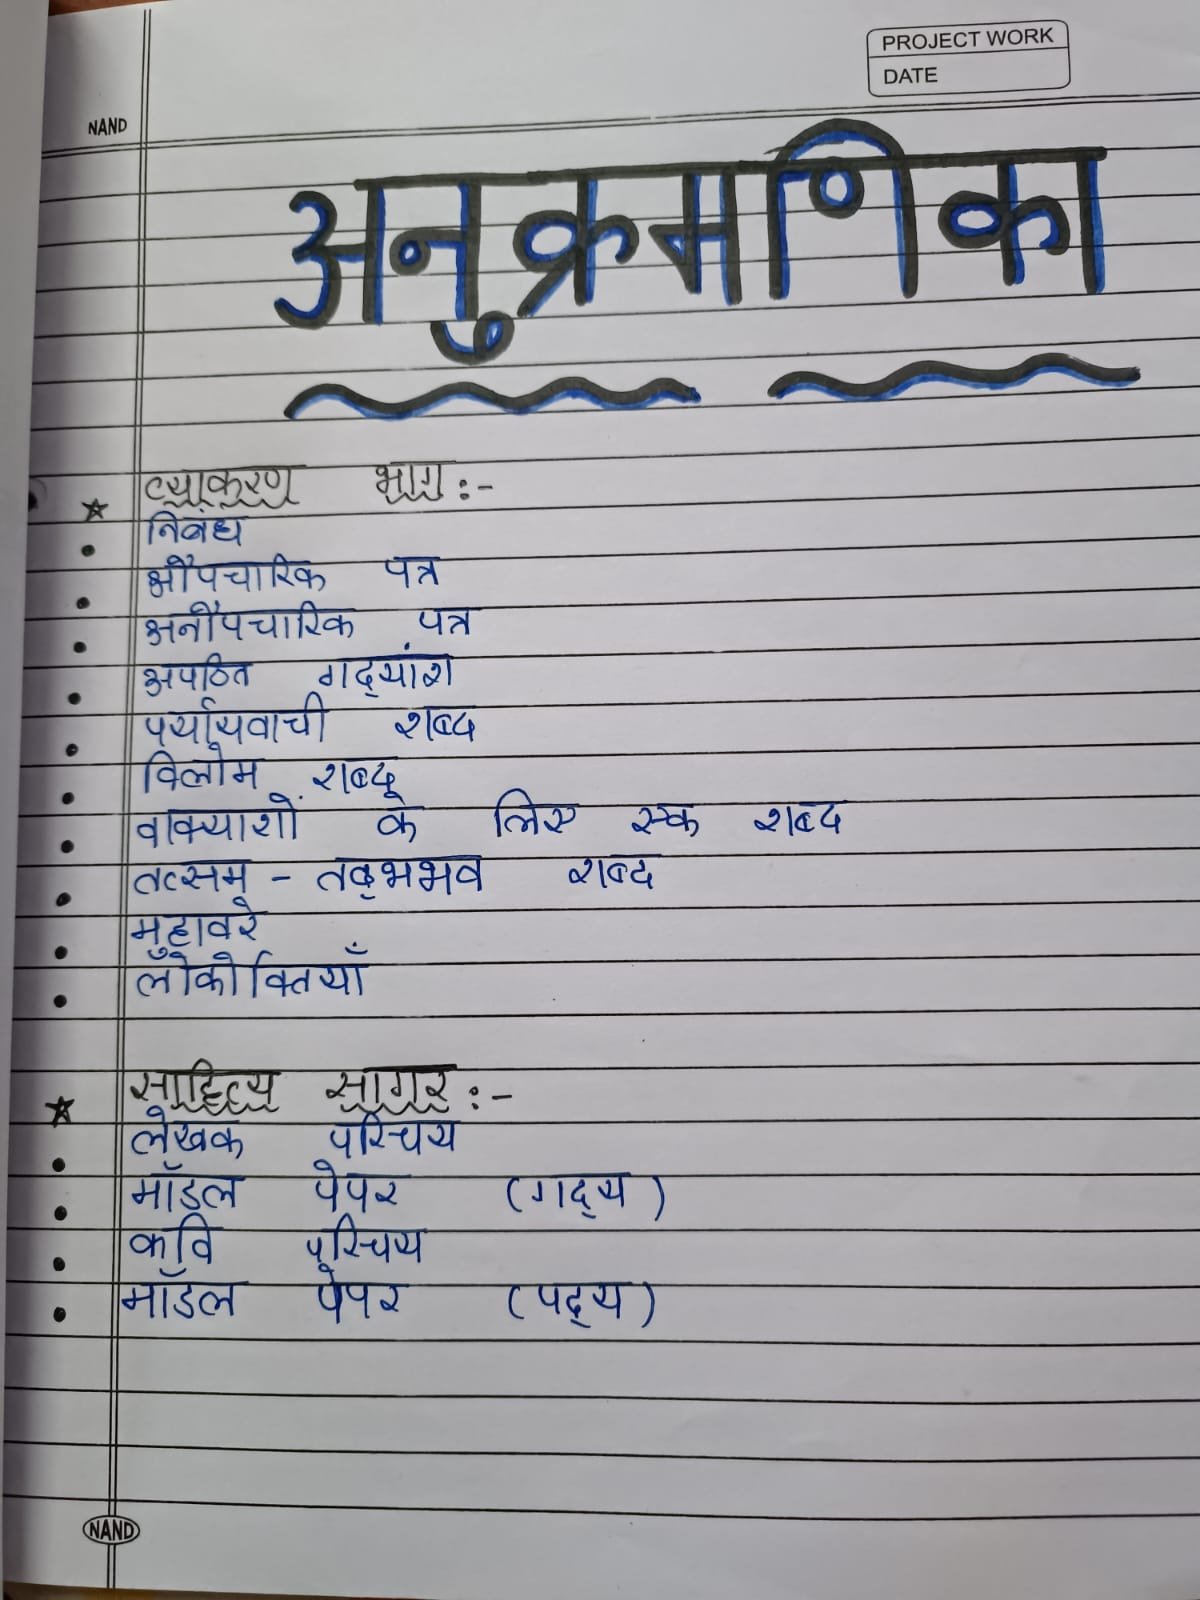 PROJECT WORK
DATE
NAND
अनुक्रमणिका
व्याकरण भाग :-
निबंध
औपचारिक पत्र
अनौपचारिक पत्र
अपठित गद्‌यांश
पर्यायवाची शब्द
विलोम शब्द
वाक्याशों के लिए एक शब्द
तत्सम् - तद्‌भभव शब्द
मुहावरे
लोकोक्तियाँ
साहित्य सागर :-
लेखक परिचय
मॉडल पेपर (गद्‌य)
कवि परिचय
मॉडल पेपर (पद्‌य)
NAND